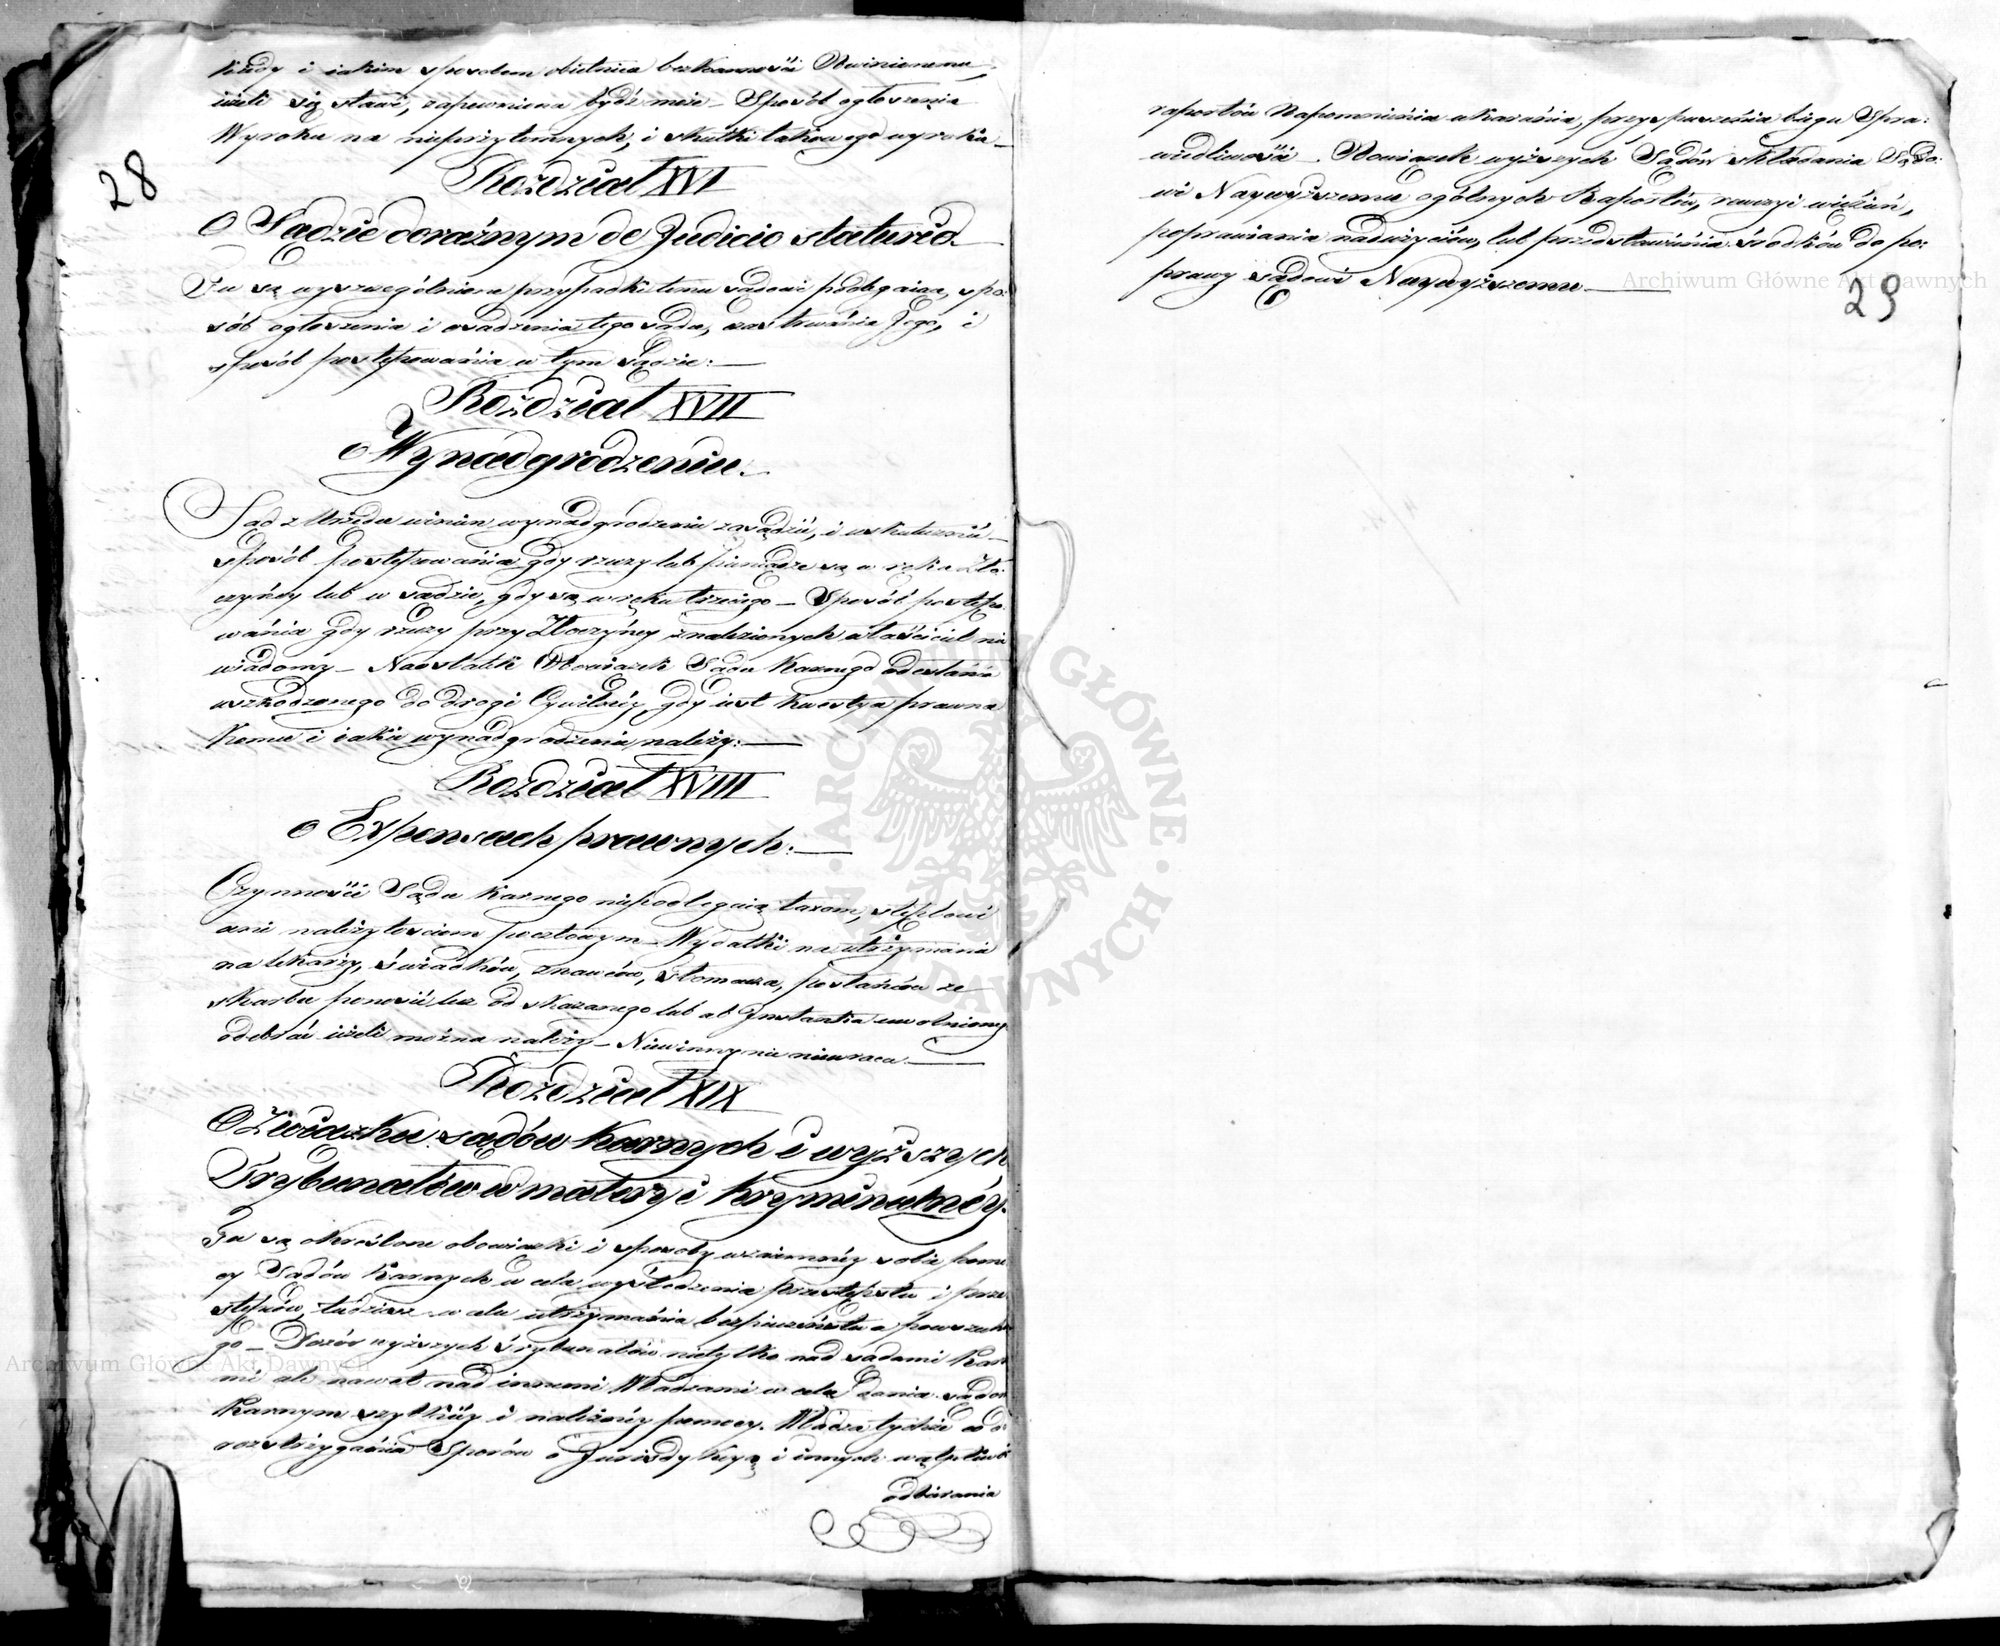 kiedy i iakim sposobem obietnica bezkarności Obwinionemu,
ieżeli się stawi, zapewniona bydź może – Sposób ogłoszenia
Wyroku na nieprzytomnych, i skutki takowego wyroku –
28
Rozdział XVI
O Sądzie doraźnym de Judicio statario.
Tu są wyszczególnione przypadki temu sądowi podlegaiące, spo:
sób ogłoszenia i osadzenia tego sądu, czas trwania Jego, i
sposób postępowania w tym sądzie: —
Rozdział XVII
o Wynadgrodzeniu.
Sąd z Urzędu winien wynadgrodzenie zasądzić, i uskutecznić –
sposób postępowania gdy rzeczy lub pieniądze są w ręku Zło:
czyńcy lub w sądzie, gdy są w ręku trzeciego – Sposób postępo:
wania gdy rzeczy przy Złoczyńcy znalezionych właściciel nie
wiadomy – Naostatek Obowiązek Sądu Karnego odesłania
uszkodzonego do drogi Cywilnéy, gdy iest kwestya prawna
komu i iakie wynadgrodzenie należy: —
Rozdział XVIII
o Expensach prawnych: —
Czynności Sądu Karnego niepodlegaią taxom, stęplowi
ani należytościom pocztowym – Wydatki na utrzymanie
na lekarzy, świadków, znawców, tłomacza, posłańców ze
skarbu ponosić lecz od skazanego lub ab Instantia uwolnionego
odebrać ieżeli można należy – Niewinny nic niewraca —
Rozdział XIX
O Związku sądów karnych i wyższych
Trybunałów w materyi kryminalnéy.
Tu są określone obowiązki i sposoby wzaiemnéy sobie pomo
cy Sądów Karnych w celu wyśledzenia przestępstw i prze
stępców, tudzież w celu utrzymania bezpieczeństwa powszechne
go – Dozór wyższych trybunałów nietylko nad sądami Kar
mi ale nawet nad innemi Władzami w celu dania sądom
Karnym szybkiéy i należnéy pomocy. Władza tychże do
rozstrzygania Sporów o Jurisdykcyą i innych wątpliwoś
odbierania
raportów Napomnienia ukarania, przyspieszenia biegu Spra:
wiedliwości – Obowiązek wyższych Sądów składania Sądo:
wi Naywyższemu ogólnych Raportów, rewizyi więzień,
poprawiania nadużyciów, lub przedstawienia środków do po:
prawy sądowi Naywyższemu —
29
Archiwum Główne Akt Dawnych
Archiwum Główne Akt Dawnych
ARCHIWUM GŁÓWNE AKT DAWNYCH